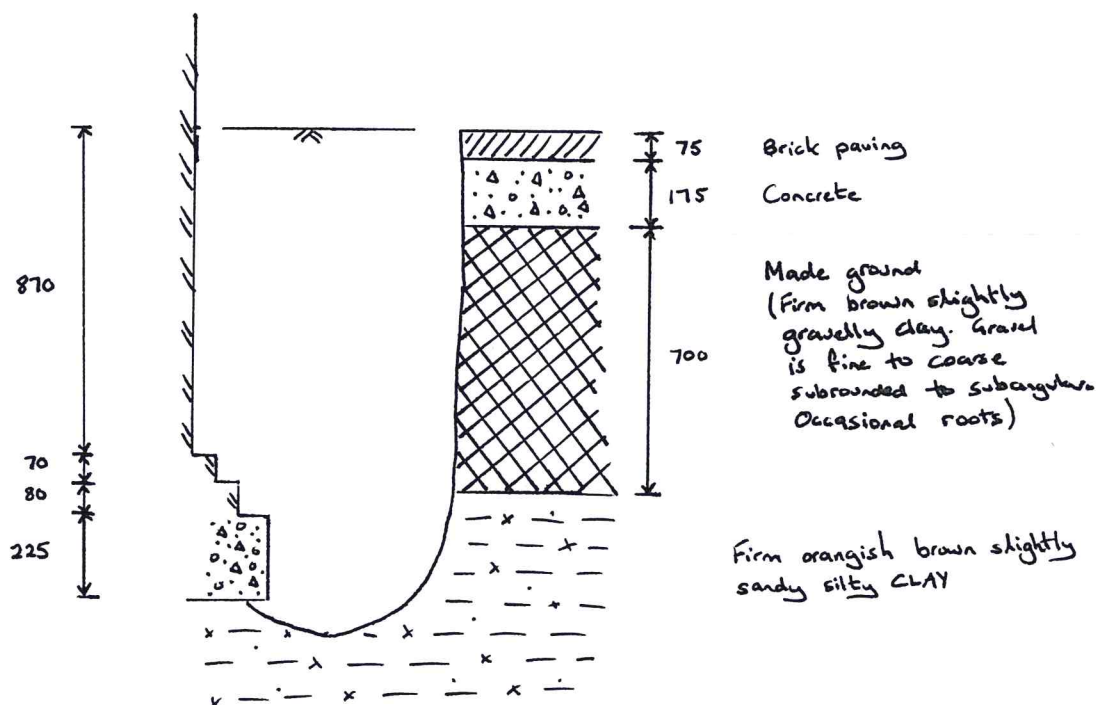 870
70
80
225
75
Brick paving
175
Concrete
700
Made ground
(Firm brown slightly
gravelly clay. Gravel
is fine to coarse
subrounded to subangular.
Occasional roots)
Firm orangish brown slightly
sandy silty CLAY